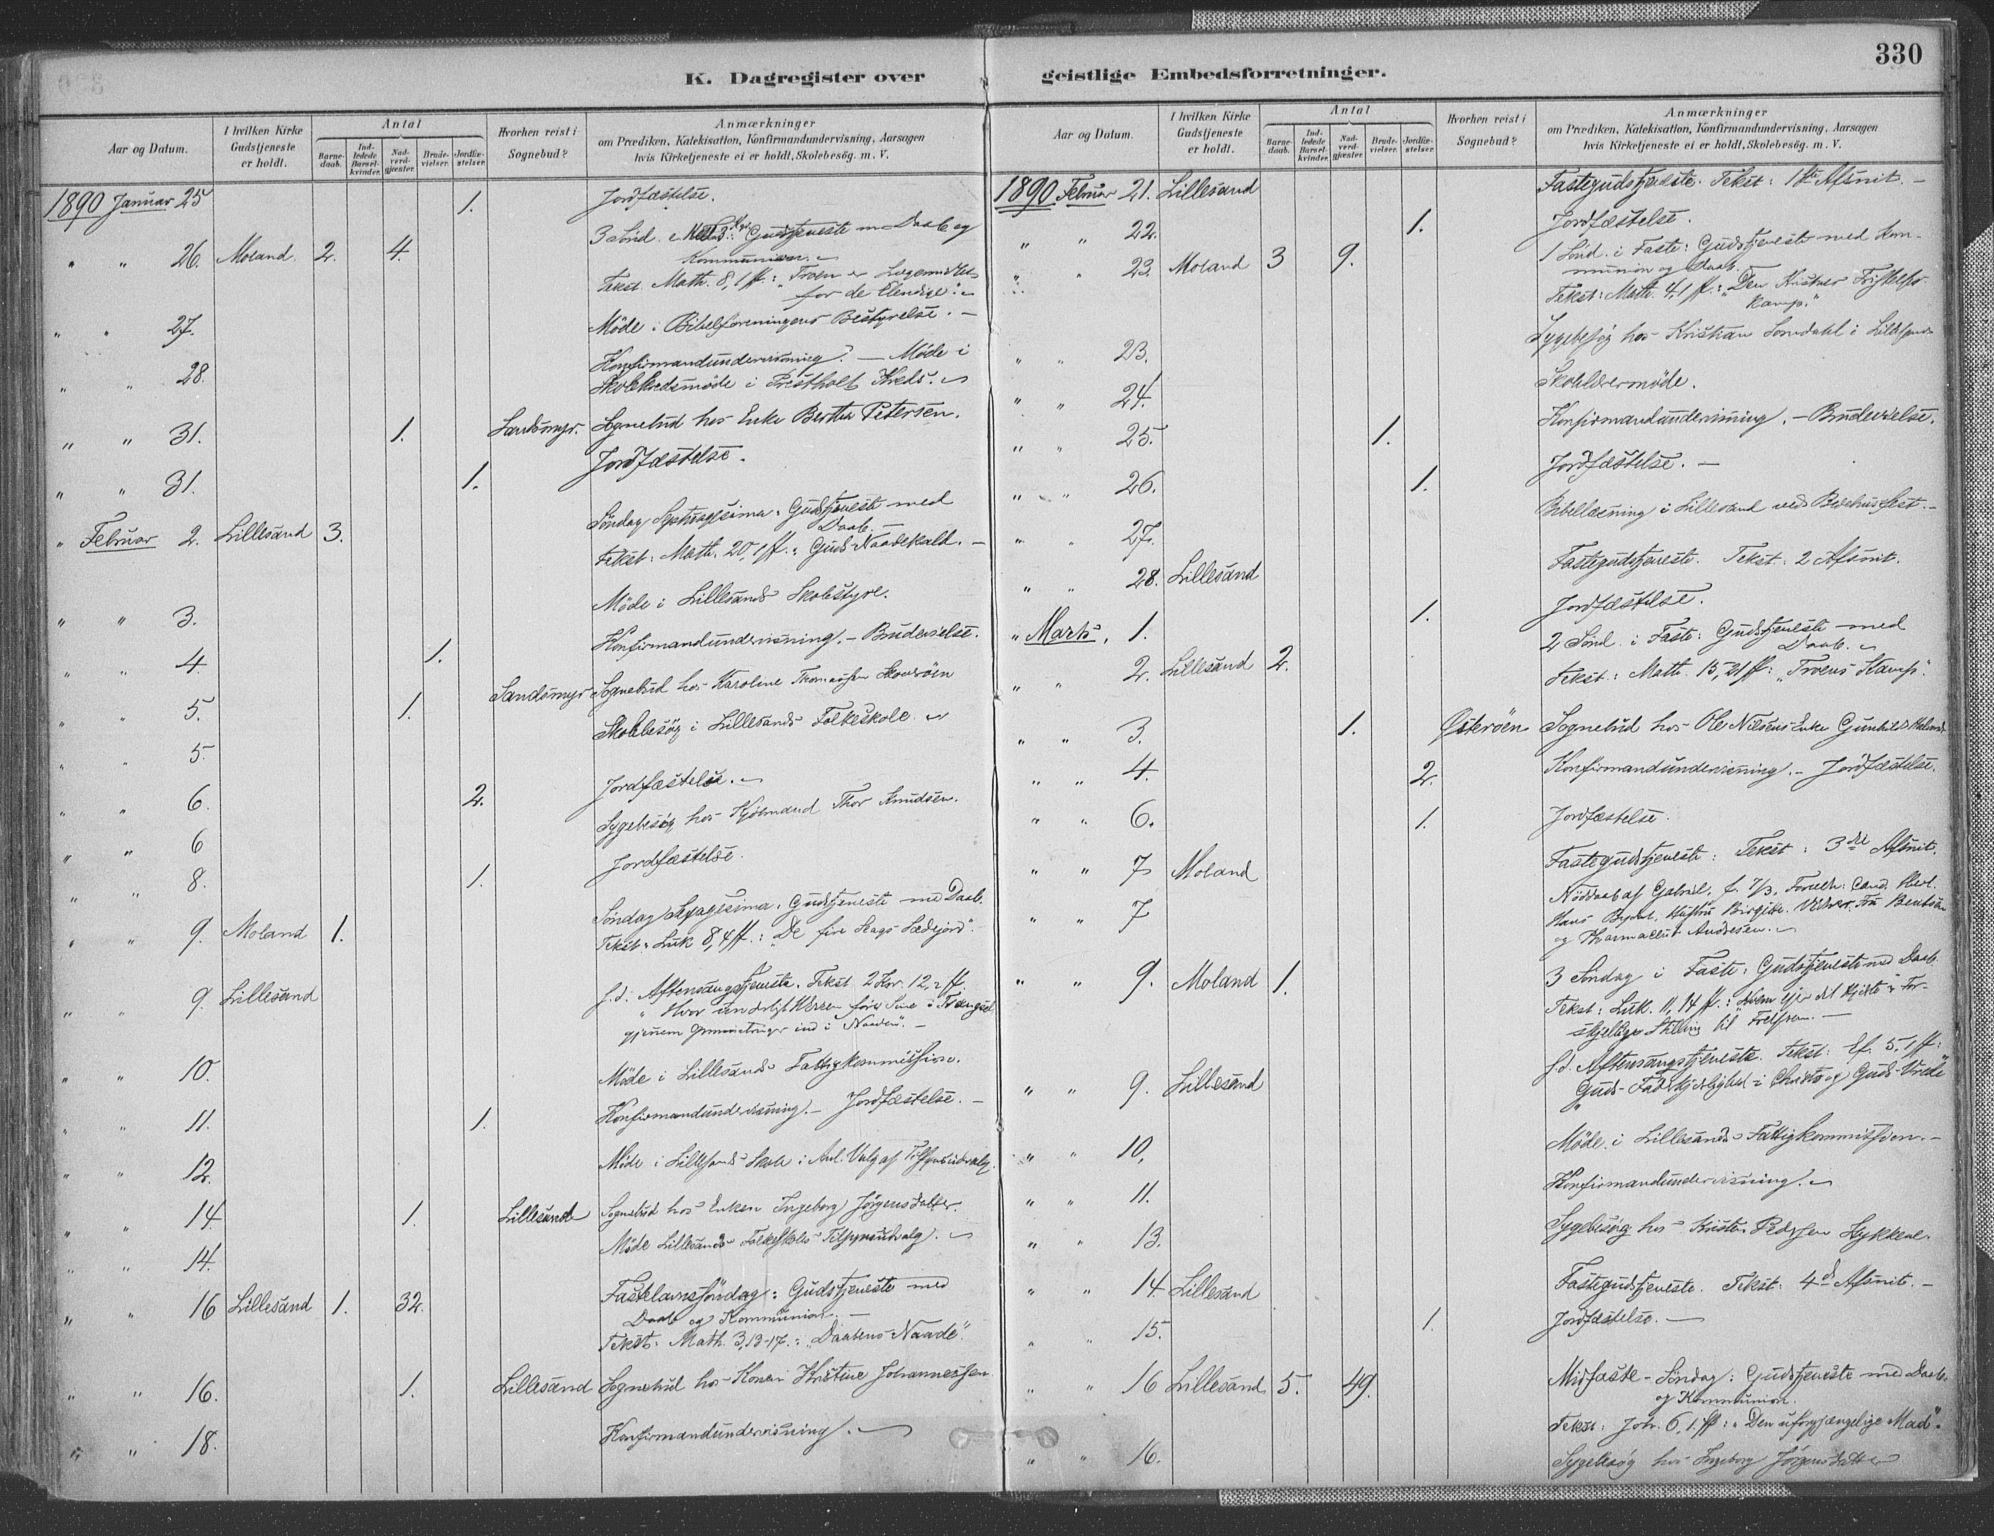 330
K. Dagregister over geistlige Embedsforretninger.
Aar og Datum. I hvilken Kirke Gudstjeneste er holdt. Antal Barnedaab. Indledede Barselkvinder. Nadverdgjester. Brudevielser. Jordfæstelser. Hvorhen reist i Sognebud? Anmærkninger om Prædiken, Katekisation, Konfirmandundervisning, Aarsagen hvis Kirketjeneste ei er holdt, Skolebesøg. m. V.
1890 Januar 25 1. Jordfæstelse.
" " 26. Moland. 2. 4. 3 Sønd. Gudstjeneste m Daab og
Kommunion.
Tekst. Math. 8,1 ff.: "Troen er
for de Elendige".
" " 27. Møde i Bibelforeningens Bestyrelse. -
" " 28. Konfirmandundervisning. - Møde i
i Kreds.
" " 31. 1. Sognebud hos Enke Bertha Petersen.
" " 31. 1. Jordfæstelse.
" Februar 2. Lillesand 3. Søndag Septuagesima. Gudstjeneste med
Daab.
Tekst: Math. 20,1 ff. "Guds Naadekald. -
" " 3. Møde i Lillesands Skolestyre.
" " 4. 1. Konfirmandundervisning. - Brudevielse.
" " 5. 1. Sandsmyr Sognebud hos Karoline
" " 5. Skolebesøg i Lillesands Folkeskole.
" " 6. 2. Jordfæstelse.
" " 6 Sygebesøg hos Thor Knudsen.
" " 8. 1. Jordfæstelse.
" " 9. Moland 1. Søndag Gudstjeneste med Daab.
Tekst: Luk 8,4 ff.: "De fire Slags Sædejord".
" " 9. Lillesand s. d. Aftensangstjeneste. Tekst. 2 Kor. 12, 2 ff.
"Hvor underligt Herren fører Sine
gjennem ind i Naaden". -
" " 10. Møde i Lillesands Fattigkommission.
" " 11. 1. Konfirmandundervisning. - Jordfæstelse. -
" " 12. Møde i Lillesands Skole i Anl. Valg af Tilsynsudvalg.
" " 14 1. Lillesand Sognebud hos Enken Ingeborg Jørgensdatter.
" " 14. Møde Lillesands Folkeskoles Tilsynsudvalg.
" " 16 Lillesand 1. 32. Fastelavnssøndag: Gudstjeneste med
Daab og Kommunion. -
Tekst: Math. 3,13-17.: "Daabens Naade".
" " 16. 1. Lillesand Sognebud hos Kone Kristine Johannessen.
" " 18. Konfirmandundervisning.
Aar og Datum. I hvilken Kirke Gudstjeneste er holdt. Antal Barnedaab. Indledede Barselkvinder. Nadverdgjester. Brudevielser. Jordfæstelser. Hvorhen reist i Sognebud? Anmærkninger om Prædiken, Katekisation, Konfirmandundervisning, Aarsagen hvis Kirketjeneste ei er holdt, Skolebesøg. m. V.
1890 Februar 21. Lillesand Fastegudstjeneste. Tekst: 1ste Afsnit. -
" " 22. 1. Jordfæstelse.
" " 23. Moland 3 9. 1 Sønd. i Faste: Gudstjeneste med Kom-
munion og Daab.
Tekst: Math. 4,1 ff.: "Den Kristnes
Kamp."
" " 23. Sygebesøg hos Kristian i
" " 24. Skolelærermøde.
" " 25. 1. Konfirmandundervisning. - Brudevielse.
" " 26. 1. Jordfæstelse. -
" " 27. Bibellæsning i Lillesand ved
" " 28. Lillesand Fastegudstjeneste. Tekst: 2 Afsnit.
" Marts. 1. 1. Jordfæstelse.
" " 2. Lillesand 2. 2 Sønd. i Faste: Gudstjeneste med
Daab.
Tekst: Math. 15,21 ff: "Troens Kamp".
" " 3. 1. Østerøen Sognebud hos Ole Nilsens Enke Gunhild
" " 4. 2. Konfirmandundervisning. - Jordfæstelse.
" " 6. 1. Jordfæstelse.
" " 7 Moland Fastegudstjeneste: Tekst: 3die Afsnit.
" " 7 Nøddaab af Gabriel, f. 7/3, Forældr: Cand.
Hans Hustru Birgitte. Fru Bentsen
og Andresen.
" " 9. Moland 1. 3 Søndag i Faste: Gudstjeneste med Daab.
Tekst: Luk. 11,14 ff.: "Hvem ejer dit Hjerte": For-
skjellige Stilling til Frelseren. -
" " 9. Lillesand s. d. Aftensangstjeneste. Tekst: Ef. 5,1 ff:
"Guds Faderkjærlighed i Christo og Guds Vrede"
" " 10. Møde i Lillesands Fattigkommission. -
" " 11. Konfirmandundervisning.
" " 13. Sygebesøg hos Pedersen
" " 14 Lillesand Fastegudstjeneste. Tekst: 4de Afsnit. -
" " 15. 1. Jordfæstelse. -
" " 16 Lillesand 5. 49. Midfaste-Søndag: Gudstjeneste med Daab.
og Kommunion.
Tekst: Joh. 6,1 ff: "Den uforgjængelige Mad".
" " 16. Sygebesøg hos Ingeborg Jørgensdatter